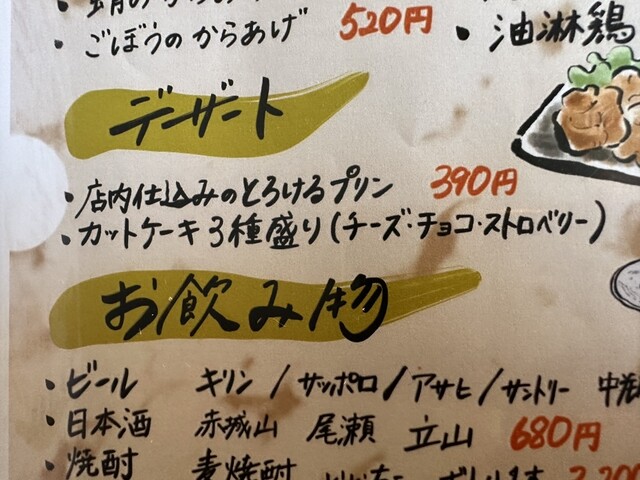 ・ごぼうのからあげ 520円 ・油淋鶏
デザート
・店内仕込みのとろけるプリン 390円
・カットケーキ3種盛り(チーズ・チョコ・ストロベリー)
お飲み物
・ビール キリン/サッポロ/アサヒ/サントリー
・日本酒 赤城山 尾瀬 立山 680円
・焼酎 麦焼酎